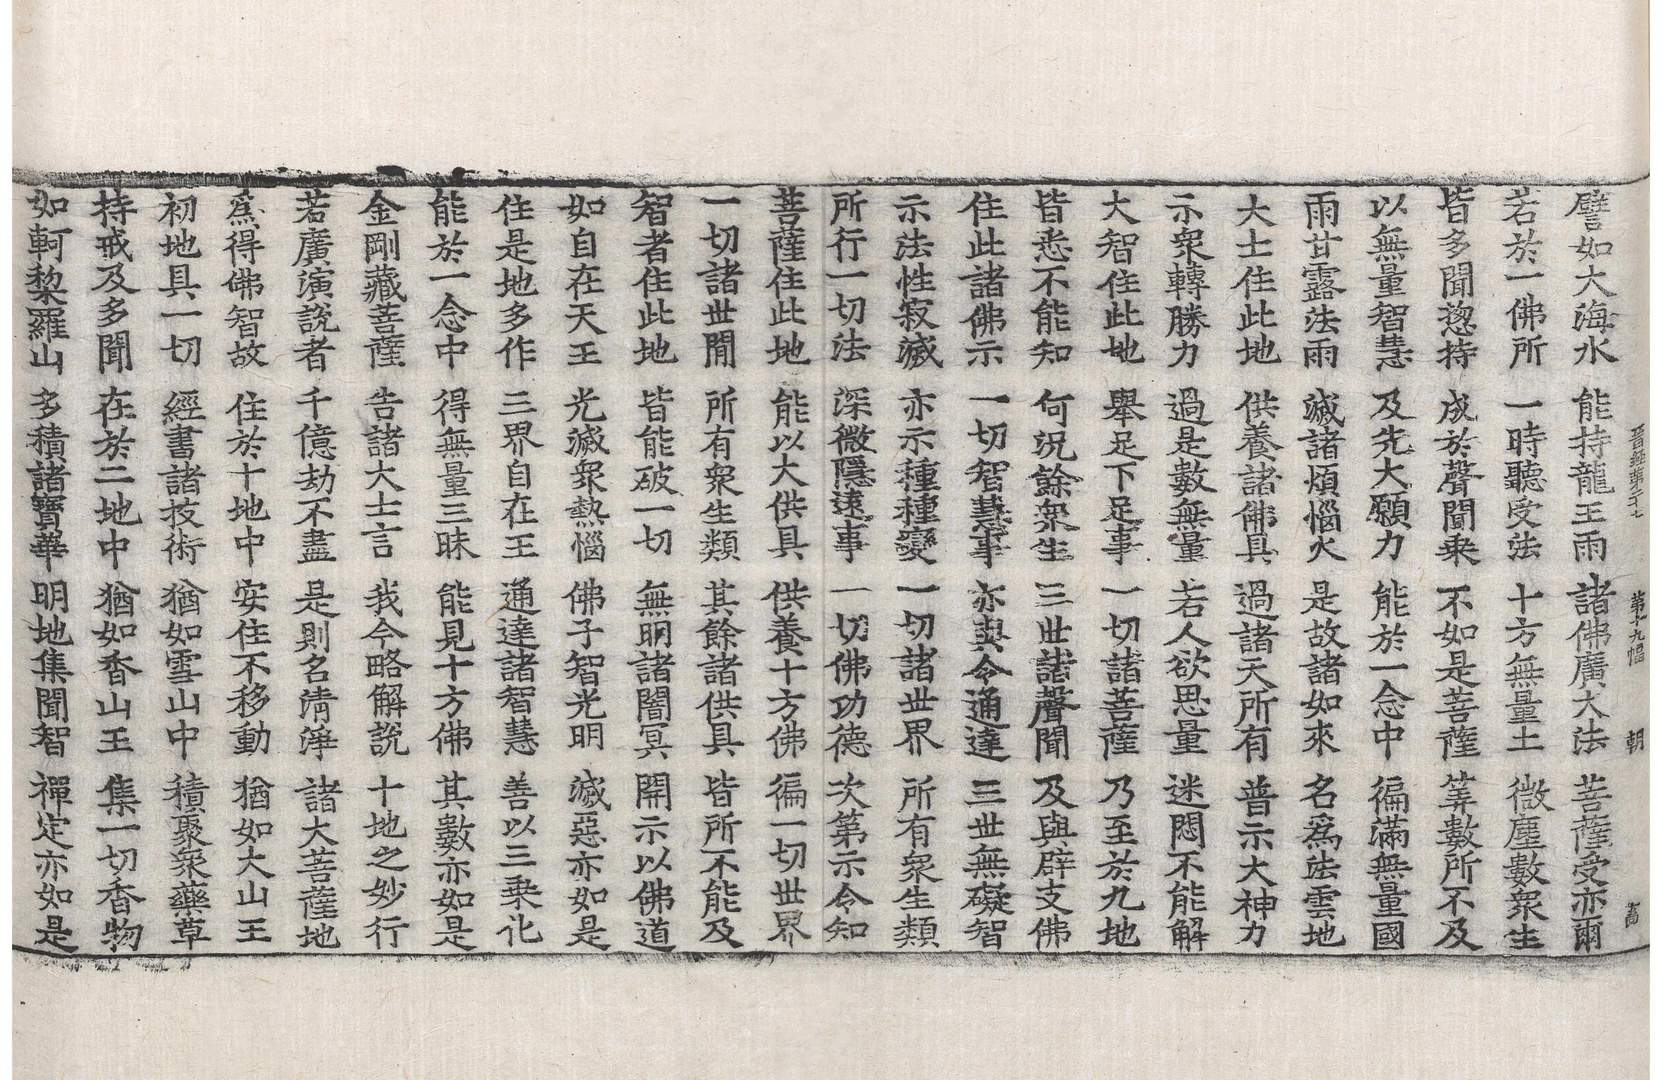 晉經第二十七　第十九幅　朝
譬如大海水　能持龍王雨　諸佛廣大法　菩薩受亦爾
若於一佛所　一時聽受法　十方無量土　微塵數衆生
皆多聞揔持　成於聲聞乘　不如是菩薩　筭數所不及
以無量智慧　及先大願力　能於一念中　徧滿無量國
雨甘露法雨　滅諸煩惱火　是故諸如來　名爲法雲地
大士住此地　供養諸佛具　過諸天所有　普示大神力
示衆轉勝力　過是數無量　若人欲思量　迷悶不能解
大智住此地　舉足下足事　一切諸菩薩　乃至於九地
皆悉不能知　何況餘衆生　三世諸聲聞　及與辟支佛
住此諸佛示　一切智慧事　亦與令通達　三世無礙智
示法性寂滅　亦示種種變　一切諸世界　所有衆生類
所行一切法　深微隱遠事　一切佛功德　次第示令知
菩薩住此地　能以大供具　供養十方佛　徧一切世界
一切諸世間　所有衆生類　其餘諸供具　皆所不能及
智者住此地　皆能破一切　無明諸闇冥　開示以佛道
如自在天王　光滅衆熱惱　佛子智光明　滅惡亦如是
住是地多作　三界自在王　通達諸智慧　善以三乘化
能於一念中　得無量三昧　能見十方佛　其數亦如是
金剛藏菩薩　告諸大士言　我今略解說　十地之妙行
若廣演說者　千億劫不盡　是則名清淨　諸大菩薩地
爲得佛智故　住於十地中　安住不移動　猶如大山王
初地具一切　經書諸技術　猶如雪山中　積聚衆藥草
持戒及多聞　在於二地中　猶如香山王　集一切香物
如軻梨羅山　多積諸寶華　明地集聞智　禪定亦如是